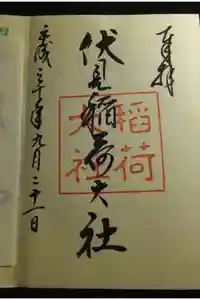 奉拝
伏見稲荷大社
稲荷
大社
平成三十年九月二十一日